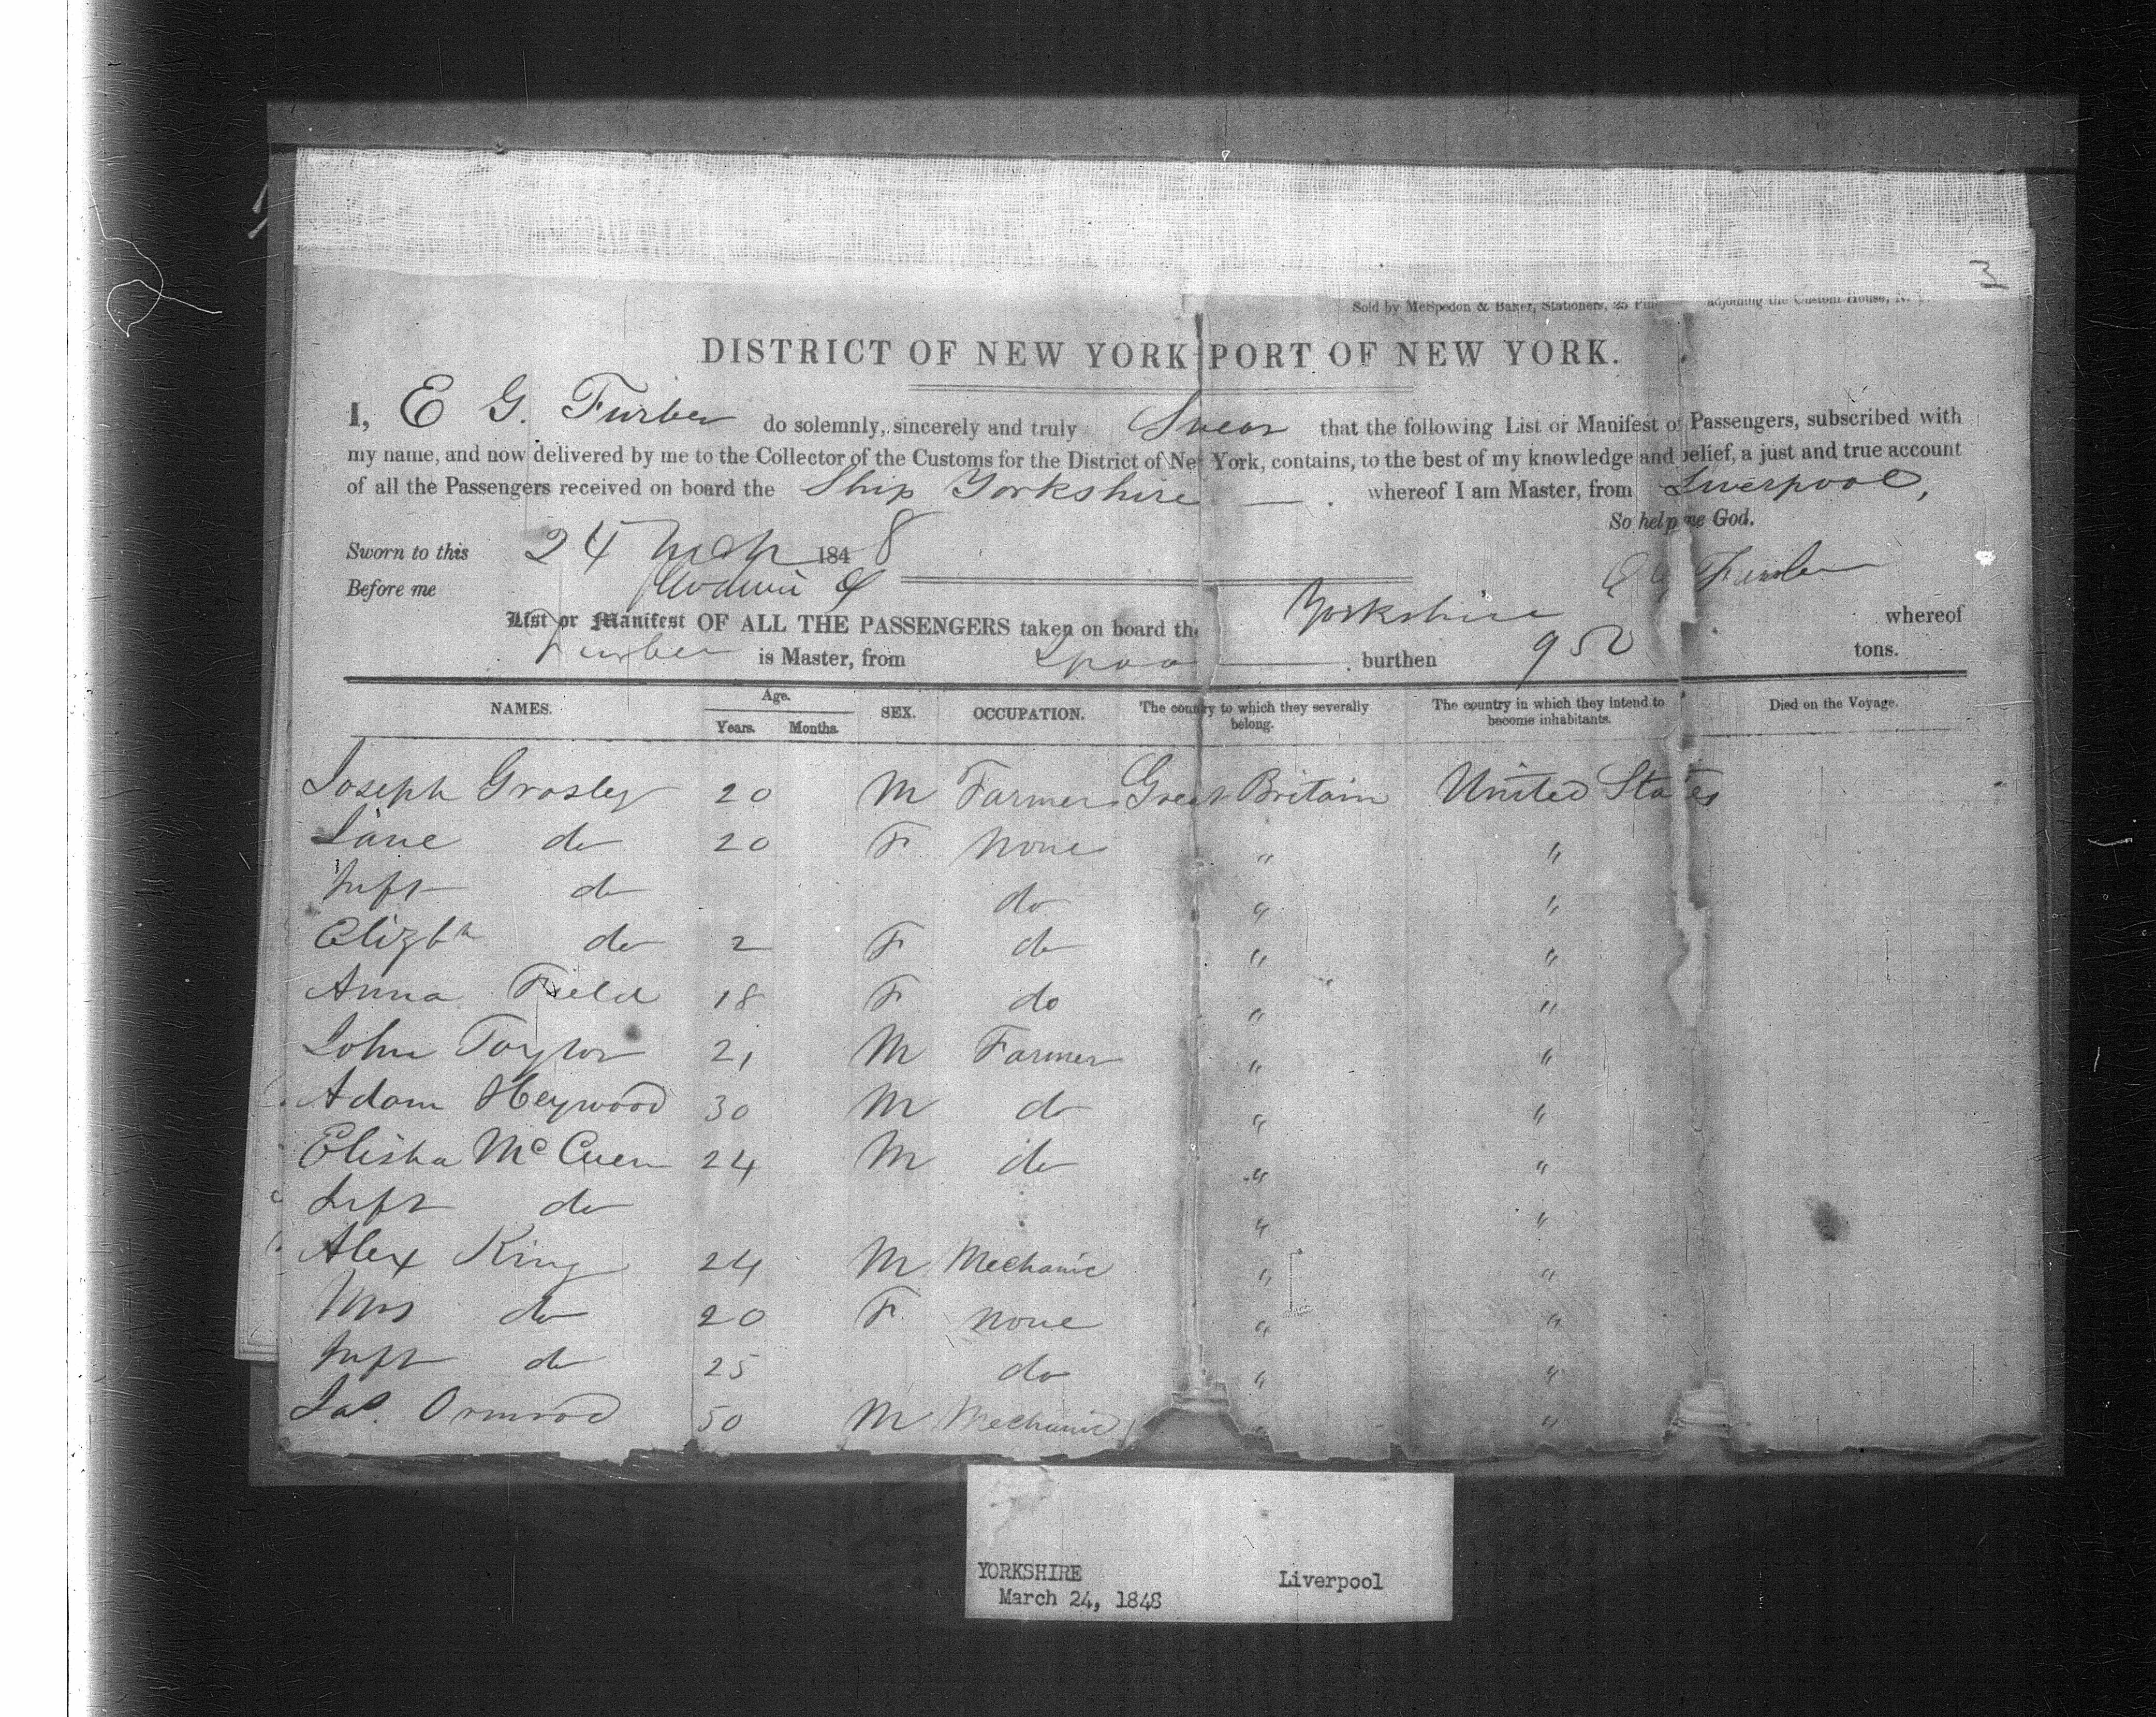 3
Sold by McSpedon & Baker, Stationers, 25 Pine adjoining the Custom House, N.
DISTRICT OF NEW YORK PORT OF NEW YORK.
I, E G. Furber do solemnly, sincerely and truly Swear that the following List or Manifest of Passengers, subscribed with
my name, and now delivered by me to the Collector of the Customs for the District of New York, contains, to the best of my knowledge and belief, a just and true account
of all the Passengers received on board the Ship Yorkshire whereof I am Master, from Liverpool,
So help me God.
Sworn to this 24 Mch 1848
Before me Furber
List or Manifest OF ALL THE PASSENGERS taken on board the Yorkshire whereof
Furber is Master, from Lpool burthen 950 tons.
NAMES. Age. Years. Months. SEX. OCCUPATION. The country to which they severally belong. The country in which they intend to become inhabitants. Died on the Voyage.
Joseph Grosley 20 M Farmer Great Britain United States
Jane do 20 F None " "
Inft do do " "
Elizbth do 2 F do " "
Anna Field 18 F do " "
John Taylor 21 M Farmer " "
Adam Heywood 30 M do " "
Elisha McCuen 24 M do " "
Inft do " "
Alex King 24 M Mechanic " "
Mrs do 20 F None " "
Inft do 25 do " "
Jas. Ormrod 50 M Mechanic " "
YORKSHIRE Liverpool
March 24, 1848